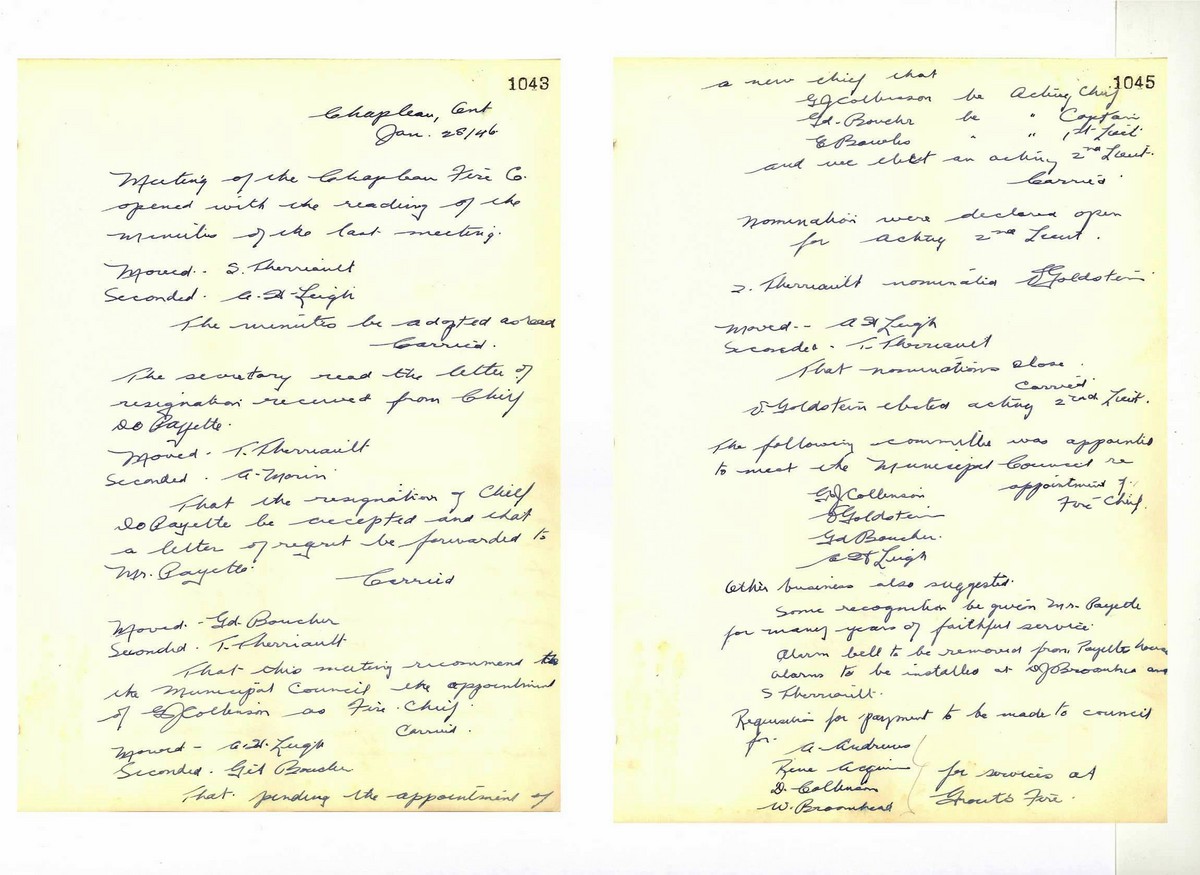 1043
Chapleau, Ont
Jan. 28/46
Meeting of the Chapleau Fire Co.
opened with the reading of the
minutes of the last meeting.
Moved - S. Therriault
Seconded - A. St Leigh
The minutes be adopted as read
Carried.
The secretary read the letter of
resignation received from Chief
DO Payette.
Moved - T. Therriault
Seconded - A. Morin
That the resignation of Chief
DO Payette be accepted and that
a letter of regret be forwarded to
Mr. Payette.
Carried
Moved - Gd. Boucher
Seconded - T. Therriault
That this meeting recommend to
the Municipal Council the appointment
of GJ Collinson as Fire Chief.
Carried.
Moved - A. St. Leigh
Seconded - Gil Boucher
That pending the appointment of
1045
a new chief that
GJ Collinson be Acting Chief
Gd. Boucher be " Captain
" " 1st Lieut
and we elect an acting 2nd Lieut.
Carried
Nomination were declared open
for acting 2nd Lieut.
S. Therriault nominated Goldstein
Moved -- A St Leigh
Seconded - T. Therriault
That nominations close.
Carried
Goldstein elected acting 2nd Lieut.
The following committee was appointed
to meet the Municipal Council re
appointment of
Fire Chief.
GJ Collinson
Goldstein
Gd Boucher.
A St Leigh
Other business also suggested.
Some recognition be given Mr. Payette
for many years of faithful service.
Alarm bell to be removed from Payette house
alarms to be installed at Broomhead and
S Therriault.
Requisition for payment to be made to council
for.
A. Andrews
Rene
D. Collinson
W. Broomhead
for services at
Fire.